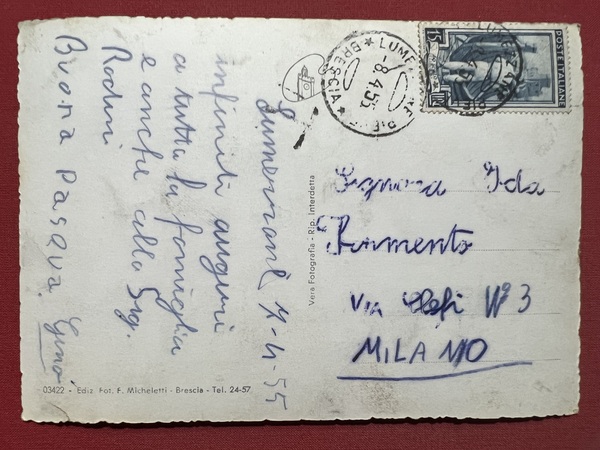 Lumezzane 7-4-55
infiniti auguri
a tutta la famiglia
e anche alla Sig.
Rodini
Buona Pasqua
03422 - Ediz. Fot. F. Micheletti - Brescia - Tel. 24-57
Vera Fotografia - Rip. Interdetta
LUMEZZANE PIEVE
* BRESCIA *
-8.4.55
POSTE ITALIANE
Signora Ida
Formento
VIA N° 3
MILANO